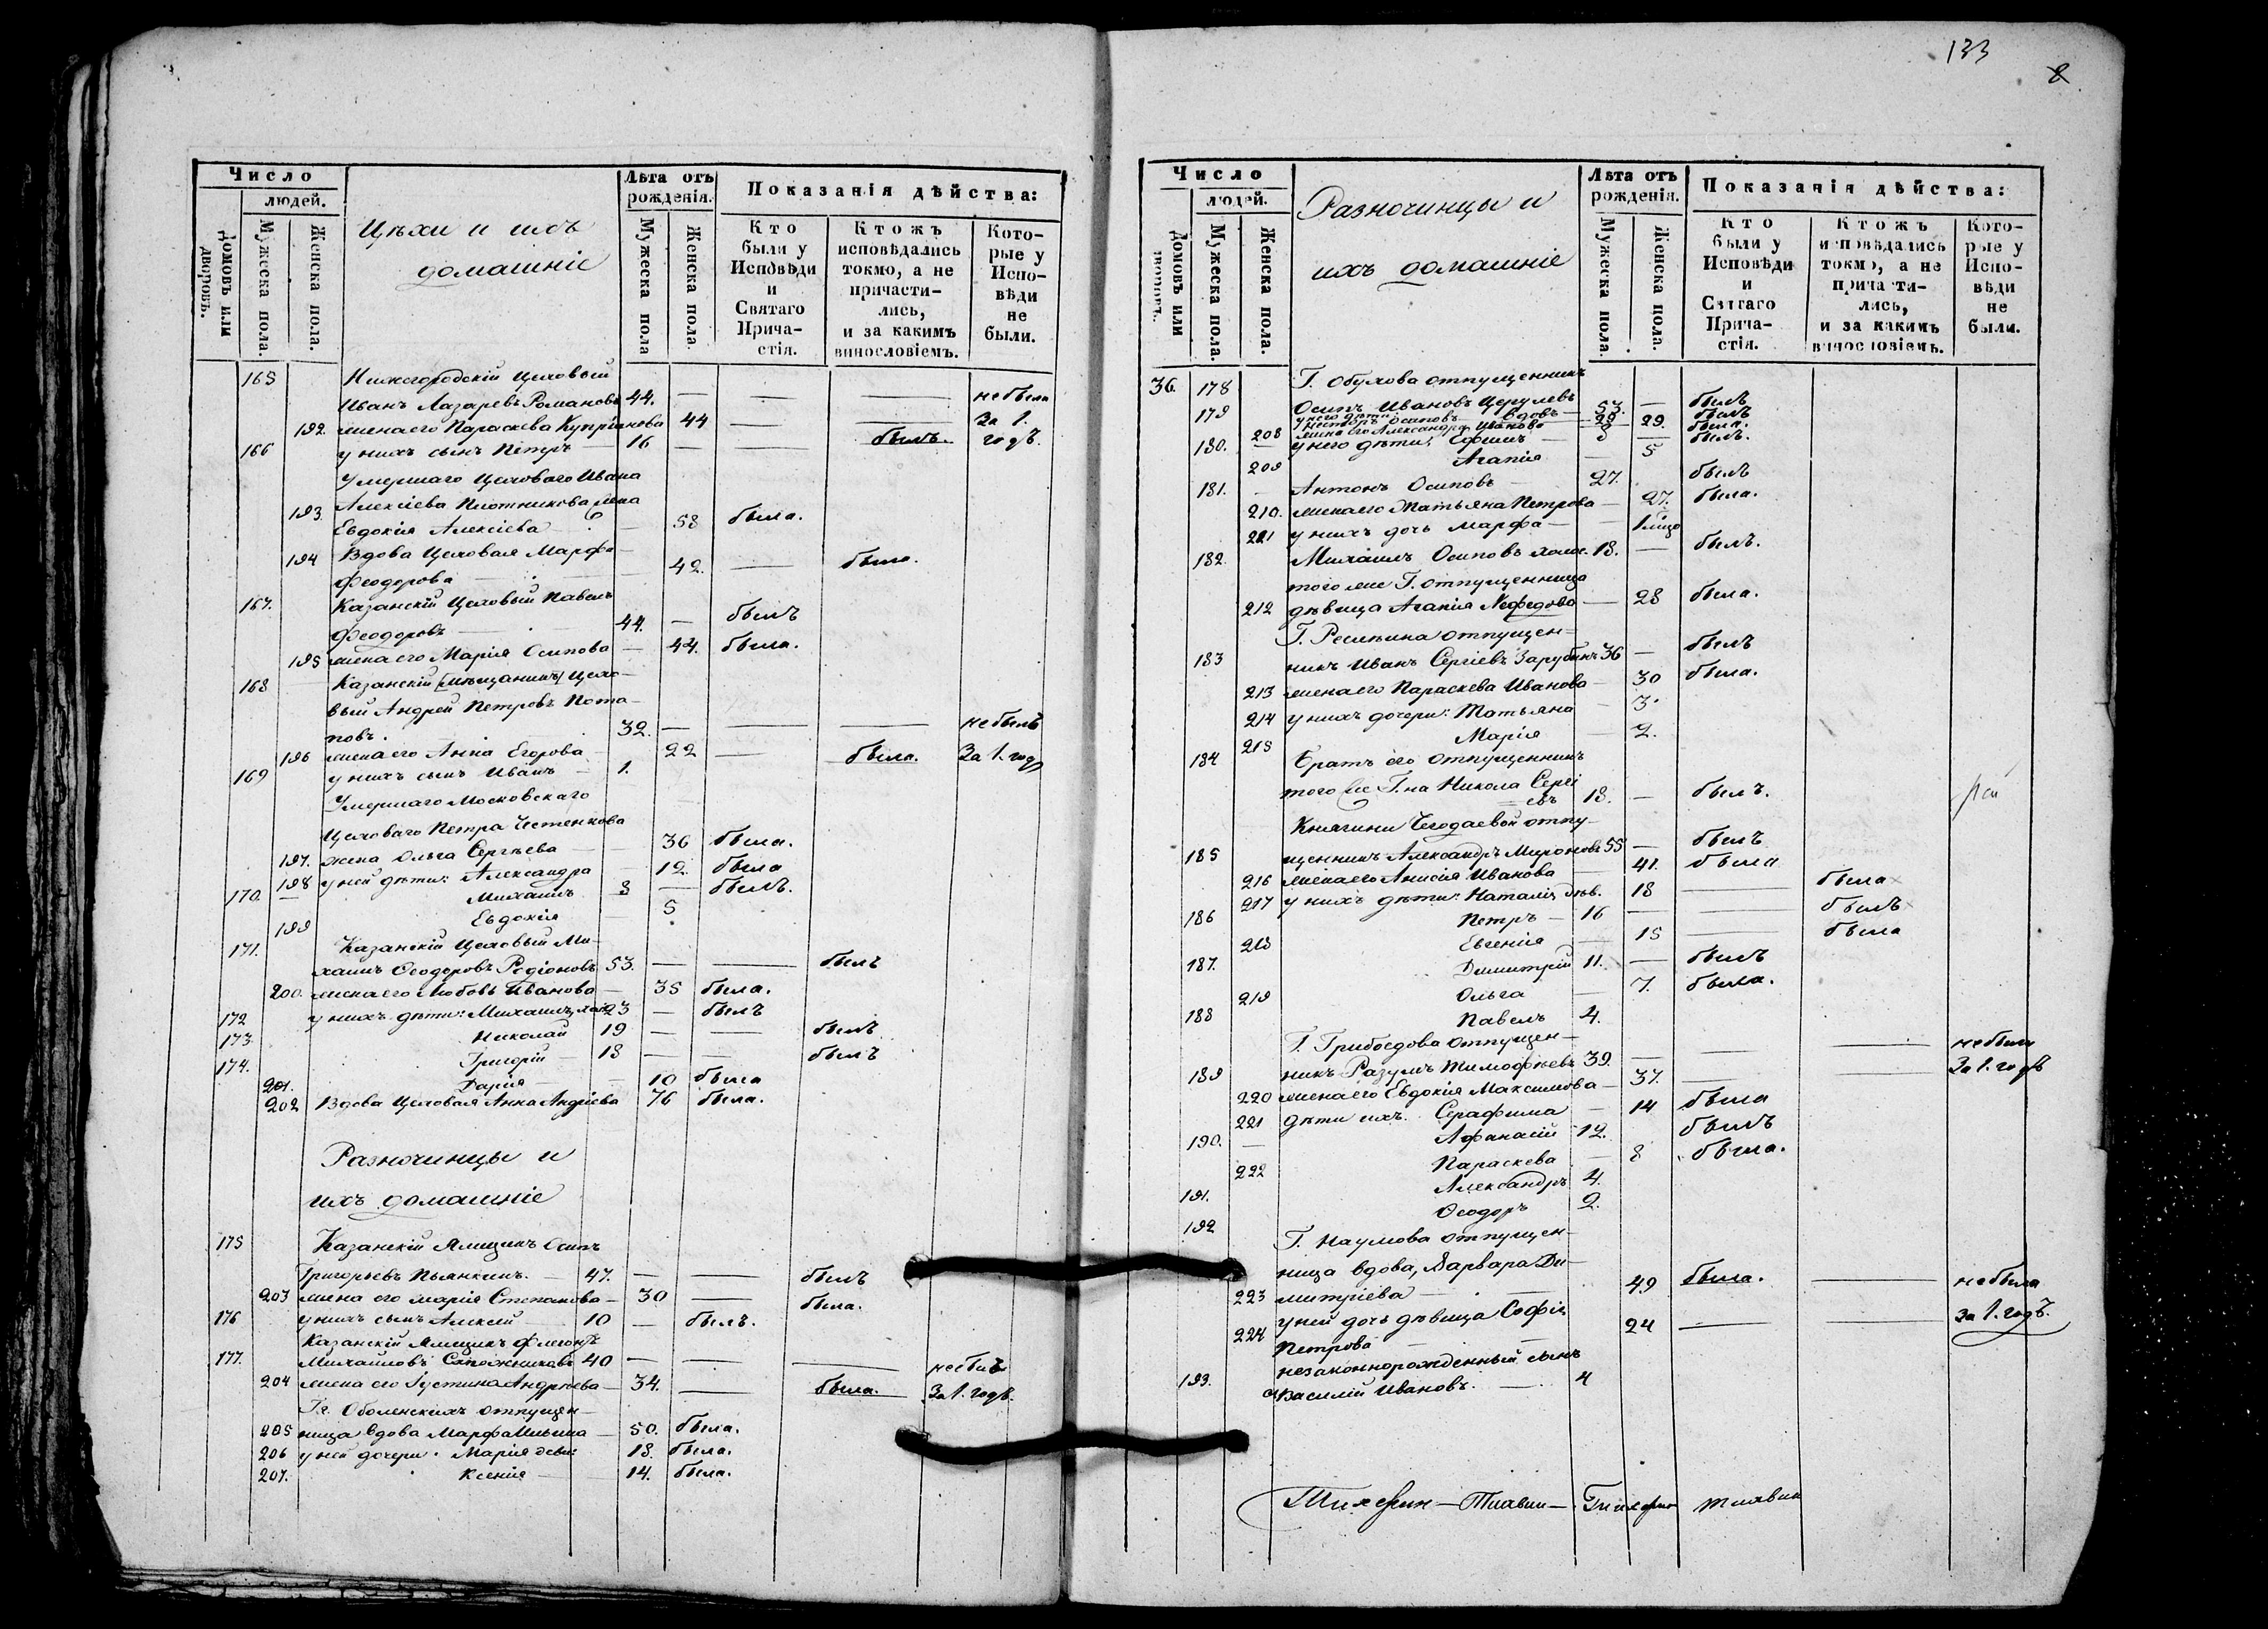 Число
людей.
домовъ или дворовъ.
Мужеска пола.
Женска пола.
Цѣхи и ихъ
домашніе
Лѣта отъ рожденія.
Мужеска пола
Женска пола.
Показанія дѣйства:
Кто были у Исповѣди и Святаго Прича-стія.
Ктожъ исповѣдались токмо, а не причасти-лись, и за какимъ винословіемъ.
Кото-рые у Испо-вѣди не были.
165 Нижегородскій Цеховый
Иванъ Лазаревъ Романовъ 44. — — — не были
192. жена его Параскева Купріянова 44 — — За 1.
166 у нихъ сынъ Петръ — 16 — — былъ. годъ.
Умершаго Цеховаго Ивана
193. Алексіева Плотникова жена
Евдокія Алексіева — 58 была.
194 Вдова Цеховая Марфа
Феодорова — 42. — была.
167. Казанскій Цеховый Павелъ
Феодоровъ — 44. — былъ
195 жена его Марія Осипова — 44. была.
168 Казанскій (мѣщанинъ) цехо-
вый Андрей Петровъ Пота-
повъ. 32. — — — не былъ
196 жена его Анна Егорова 22 — была. За 1. годъ
169 у нихъ сынъ Иванъ — 1.
Умершаго Московскаго
Цеховаго Петра Честенкова
197. жена Ольга Сергѣева — 36 была.
198 у ней дѣти: Александра 12. была
170. — Михаилъ 8 — былъ.
199 Евдокія 5
171. Казанскій Цеховый Ми-
хаилъ Ѳеодоровъ Родіоновъ 53. — — былъ
200. жена его Любовь Иванова — 35 была.
172 у нихъ дѣти: Михаилъ, хол. 23 — былъ
173. Николай 19 — — былъ
174. Григорій — 18 — — былъ
201. Дарія — — 10 была
202 Вдова Цеховая Анна Андріева 76 была.
Разночинцы и
ихъ домашніе
175 Казанскій Ямщикъ Осипъ
Григорьевъ Пьянкинъ. — 47. — — былъ
203 жена его Марія Степанова — 30 — была.
176 у нихъ сынъ Алексій — 10 — былъ.
Казанскій Ямщикъ Флегонтъ
177. Михайловъ Сапожниковъ 40 — — — не былъ
204 жена его Іустина Андреева — 34. — была. За 1. годъ.
Гг. Оболенскихъ отпущен-
205 ница вдова Марфа Ильина — 50. была.
206 у ней дочери: Марія девиц. 18. была.
207. Ксенія — 14. была.
133
8
Число
людей.
домовъ или дворовъ.
Мужеска пола.
Женска пола.
Разночинцы и
ихъ домашніе
Лѣта отъ рожденія.
Мужеска пола.
Женска пола.
Показанія дѣйства:
Кто были у Исповѣди и Святаго Прича-стія.
Ктожъ исповѣдались токмо, а не причасти-лись, и за какимъ винословіемъ.
Кото-рые у Испо-вѣди не были.
36. 178 Г. Обухова отпущенникъ
Осипъ Ивановъ вдовъ — 53. — былъ
179 у него дѣти: Осиповъ — 29 былъ
208 жена его Александра Иванова 29. была.
180. — у него дѣти: Ефимъ — 8 былъ.
209 Агапія — 5
181. — Антонъ Осиповъ — 27. былъ
210. жена его Татьяна Петрова — 27. была.
211 у нихъ дочь Марфа — 1
182. Михаилъ Осиповъ холос. 18. — былъ.
того же Г. отпущенница
212 дѣвица Агапія Нефедова — 28 была.
отпущен-
183 никъ Иванъ Сергіевъ Зарубинъ 36 — былъ
213 жена его Параскева Иванова — 30 была.
214 у нихъ дочери: Татьяна — 3.
215 Марія — 2.
184 Братъ его отпущенникъ
того же Г.на Никола Сергі
евъ 18. — былъ.
Княгини Чегодаевой отпу-
185 щенникъ Александръ Мироновъ 55 — былъ
216 жена его Анисія Иванова 41. была
217 у нихъ дѣти: Наталія дѣв. 18 — была
186 Петръ — 16 — — былъ
218 Евгенія — 15 — была
187. Димитрій 11. — былъ
219 Ольга — 7. была.
188 Павелъ 4.
Г. Грибоедова отпущен-
189 никъ Разумъ Тимофѣевъ 39. — — — не были
220 жена его Евдокія Максимова — 37. — За 1. годъ
221 дѣти ихъ: Серафима — 14 была
190. — Афанасій 12. былъ
222 Параскева — 8 была.
191. Александръ 4.
192 Ѳеодоръ 2.
Г. Наумова отпущен-
ница вдова, Варвара Ди-
223 митріева — 49 была. — не была
224 у ней дочь дѣвица Софія
Петрова — 24 — — за 1. годъ.
незаконнорожденный сынъ
193. Василій Ивановъ. — 4